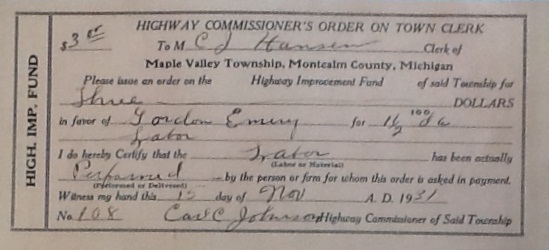 HIGHWAY COMMISSIONER'S ORDER ON TOWN CLERK
$3 00 To M C J Hansen Clerk of
Maple Valley Township, Montcalm County, Michigan
Please issue an order on the Highway Improvement Fund of said Township for
Three DOLLARS
in favor of Gordon Emery for 1 1/2 da
Labor
I do hereby Certify that the Labor has been actually
(Labor or Material)
Performed by the person or firm for whom this order is asked in payment.
(Performed or Delivered)
Witness my hand this 15 day of Nov A. D. 1931
No. 108 Carl C Johnson Highway Commissioner of Said Township
HIGH. IMP. FUND